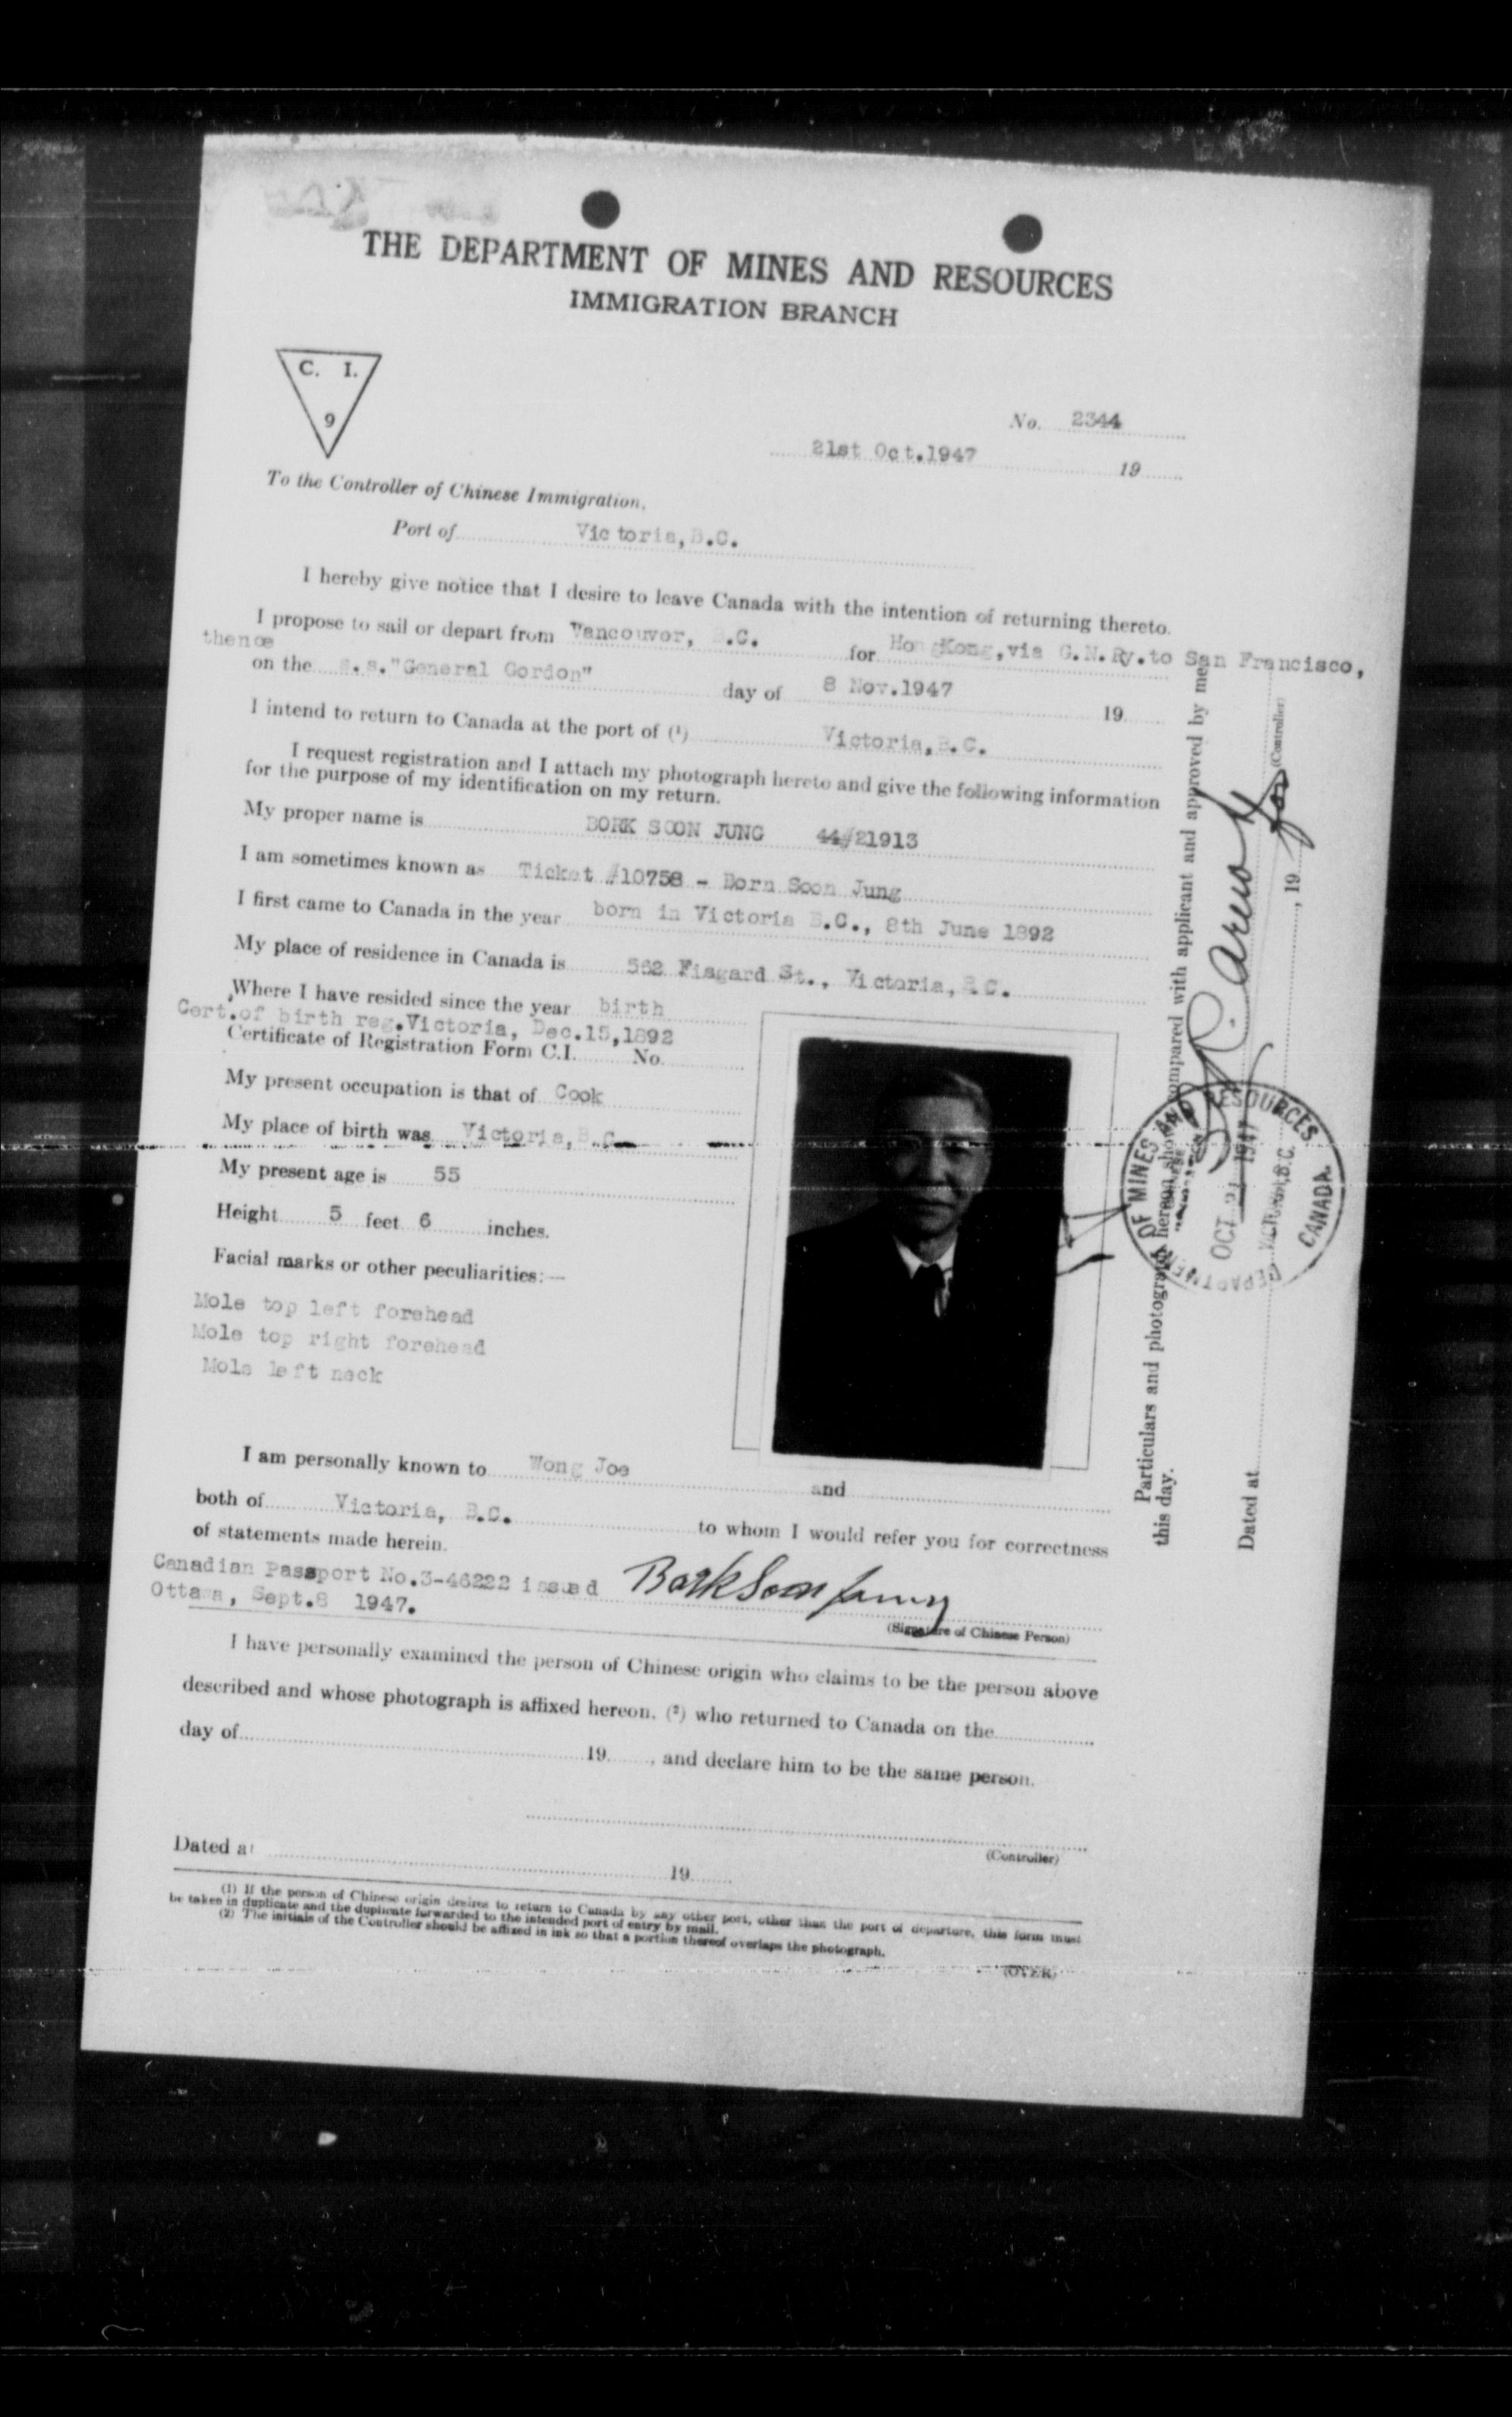 THE DEPARTMENT OF MINES AND RESOURCES
IMMIGRATION BRANCH
C. I.
9
No. 2344
21st Oct.1947 19
To the Controller of Chinese Immigration,
Port of Victoria,B.C.
I hereby give notice that I desire to leave Canada with the intention of returning thereto.
I propose to sail or depart from Vancouver, B.C. for HongKong,via G.N.Ry.to San Francisco,
thence
on the s.s."General Gordon" day of 8 Nov.1947 19
I intend to return to Canada at the port of (1) Victoria,B.C.
I request registration and I attach my photograph hereto and give the following information
for the purpose of my identification on my return.
My proper name is BORK SOON JUNG 44/21913
I am sometimes known as Ticket #10758 - Born Soon Jung
I first came to Canada in the year born in Victoria B.C., 8th June 1892
My place of residence in Canada is 562 Fisgard St., Victoria, B.C.
Where I have resided since the year birth
Cert.of birth reg.Victoria, Dec.15,1892
Certificate of Registration Form C.I. No.
My present occupation is that of Cook
My place of birth was Victoria, B.C.
My present age is 55
Height 5 feet 6 inches.
Facial marks or other peculiarities:—
Mole top left forehead
Mole top right forehead
Mole left neck
I am personally known to Wong Joe and
both of Victoria, B.C. to whom I would refer you for correctness
of statements made herein.
Canadian Passport No.3-46222 issued
Ottawa, Sept.8 1947.
Bork Soon Jung
(Signature of Chinese Person)
I have personally examined the person of Chinese origin who claims to be the person above
described and whose photograph is affixed hereon, (2) who returned to Canada on the
day of 19 , and declare him to be the same person.
(Controller)
Dated at 19
(1) If the person of Chinese origin desires to return to Canada by any other port, other than the port of departure, this form must
be taken in duplicate and the duplicate forwarded to the intended port of entry by mail.
(2) The initials of the Controller should be affixed in ink so that a portion thereof overlaps the photograph.
(OVER)
Particulars and photograph hereon shown compared with applicant and approved by me
this day.
for (Controller)
Dated at , 19
DEPARTMENT OF MINES AND RESOURCES
OCT 21 1947
VICTORIA, B.C.
CANADA